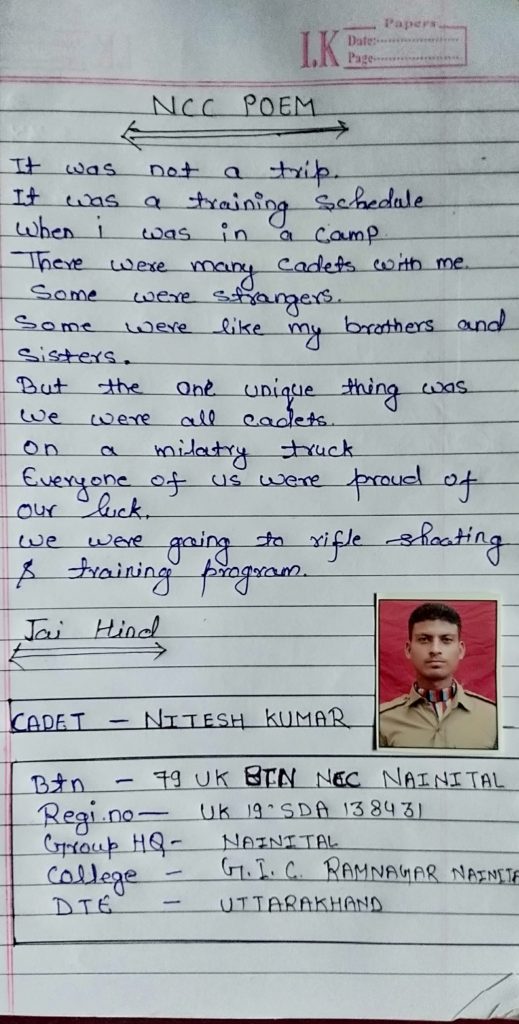 Papers
I.K
Date:
Page
NCC POEM
It was not a trip.
It was a training schedule
When i was in a camp.
There were many cadets with me.
Some were strangers.
Some were like my brothers and
sisters.
But the one unique thing was
we were all cadets.
on a milatry truck
Everyone of us were proud of
our luck.
we were going to rifle shooting
& training program.
Jai Hind
CADET - NITESH KUMAR
Btn - 79 UK BTN NCC NAINITAL
Regi.no - UK 19-SDA 138431
Group HQ - NAINITAL
College - G.I.C. RAMNAGAR NAINITA
DTE - UTTARAKHAND